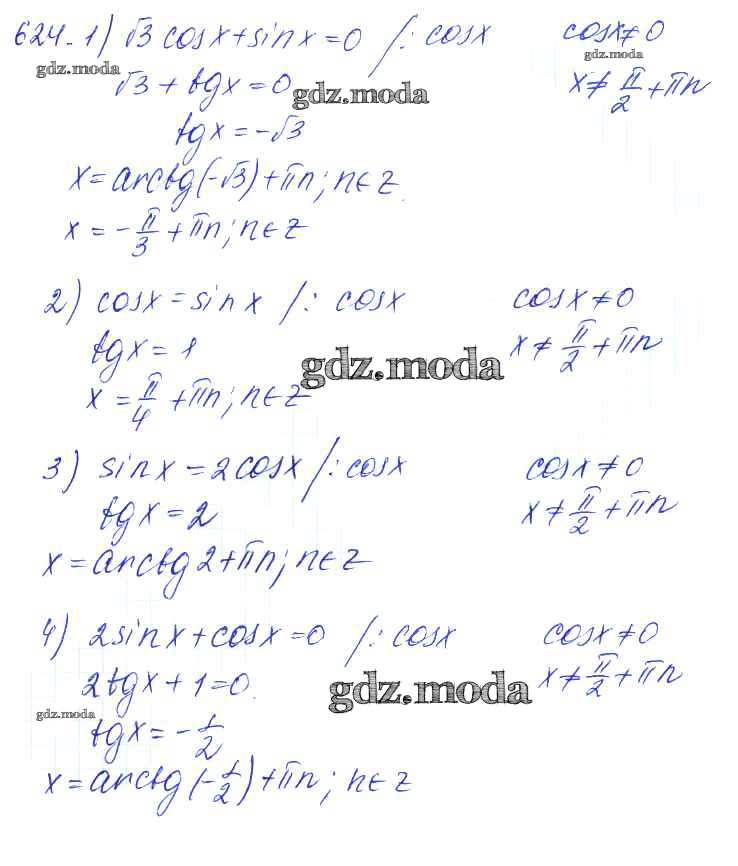 624. 1) √3 cosx + sinx = 0 /: cosx cosx ≠ 0
gdz.moda gdz.moda
√3 + tgx = 0 gdz.moda x ≠ π/2 + πn
tgx = -√3
x = arctg(-√3) + πn; n∈Z
x = -π/3 + πn; n∈Z
2) cosx = sinx /: cosx cosx ≠ 0
tgx = 1 gdz.moda x ≠ π/2 + πn
x = π/4 + πn; n∈Z
3) sinx = 2cosx /: cosx cosx ≠ 0
tgx = 2 x ≠ π/2 + πn
x = arctg 2 + πn; n∈Z
4) 2sinx + cosx = 0 /: cosx cosx ≠ 0
2tgx + 1 = 0. gdz.moda x ≠ π/2 + πn
gdz.moda
tgx = -1/2
x = arctg(-1/2) + πn; n∈Z